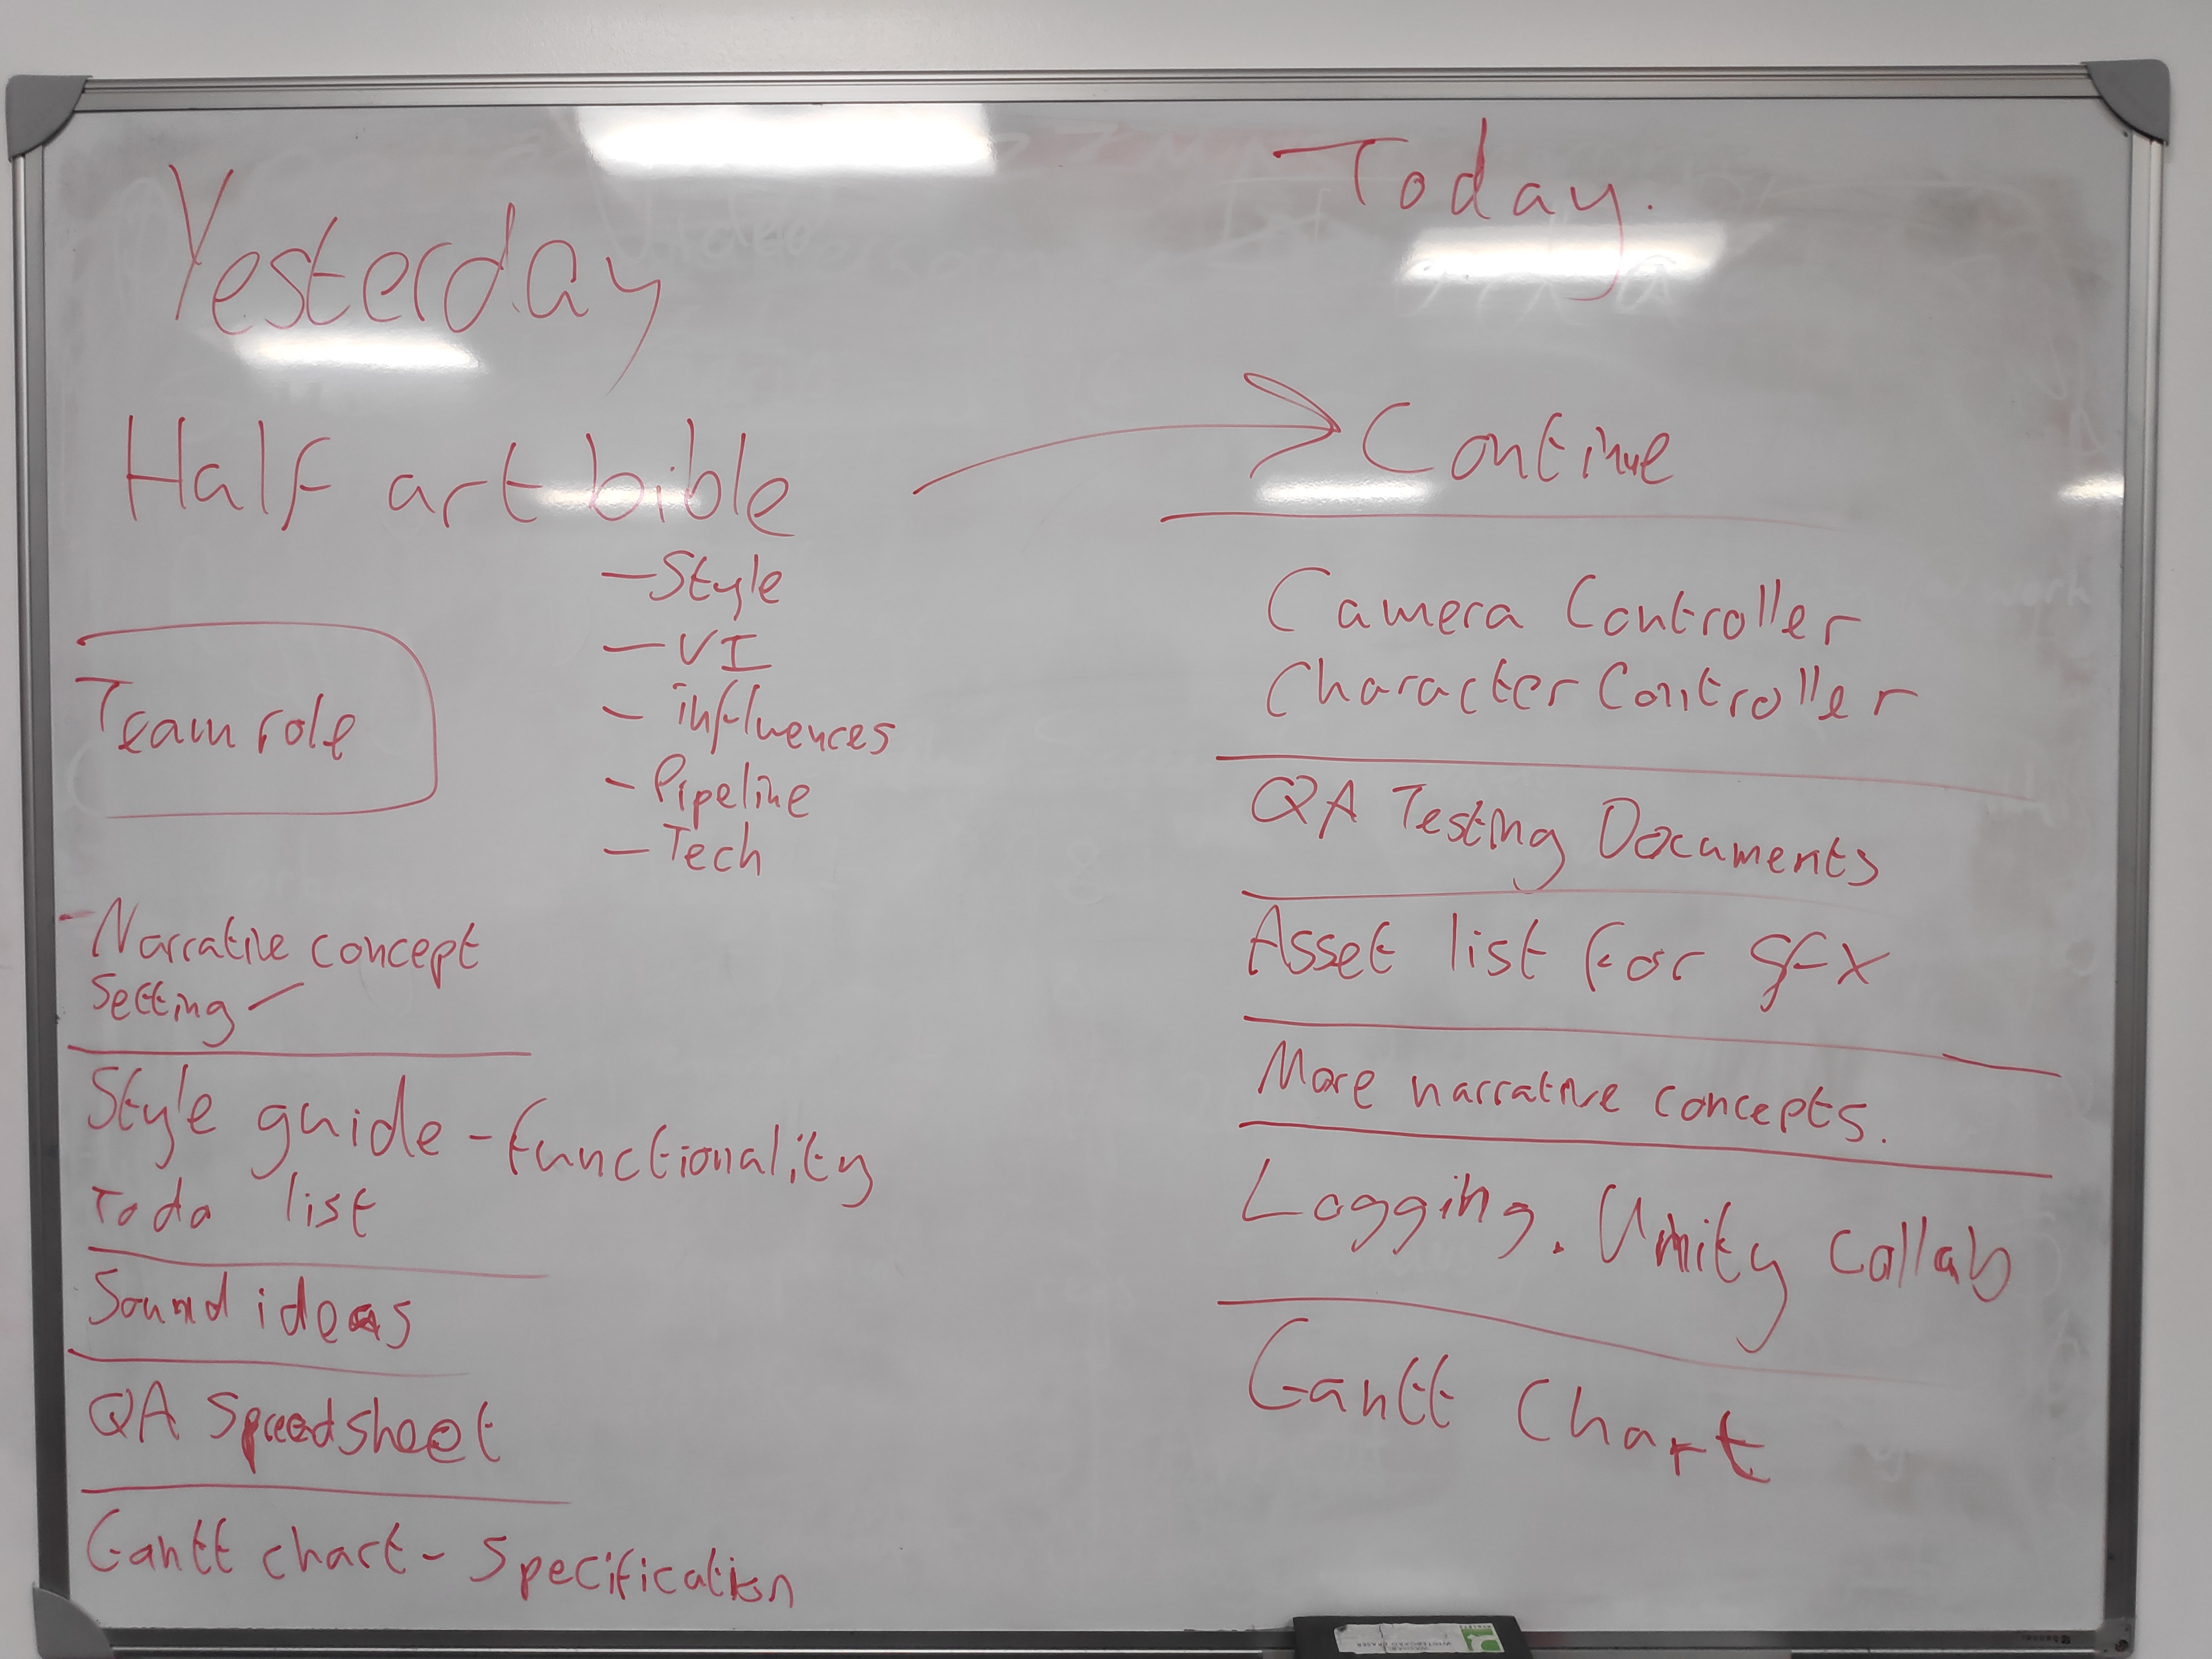 Yesterday
Half art bible
- Style
- UI
- influences
- Pipeline
- Tech
Team role
- Narrative concept
Setting -
Style guide - functionality
Todo list
Sound ideas
QA Spreedsheet
Gantt chart - Specification
Today.
Continue
Camera Controller
Character Controller
QA Testing Documents
Asset list for SFX
More narrative concepts.
Logging. Unity Collab
Gantt Chart